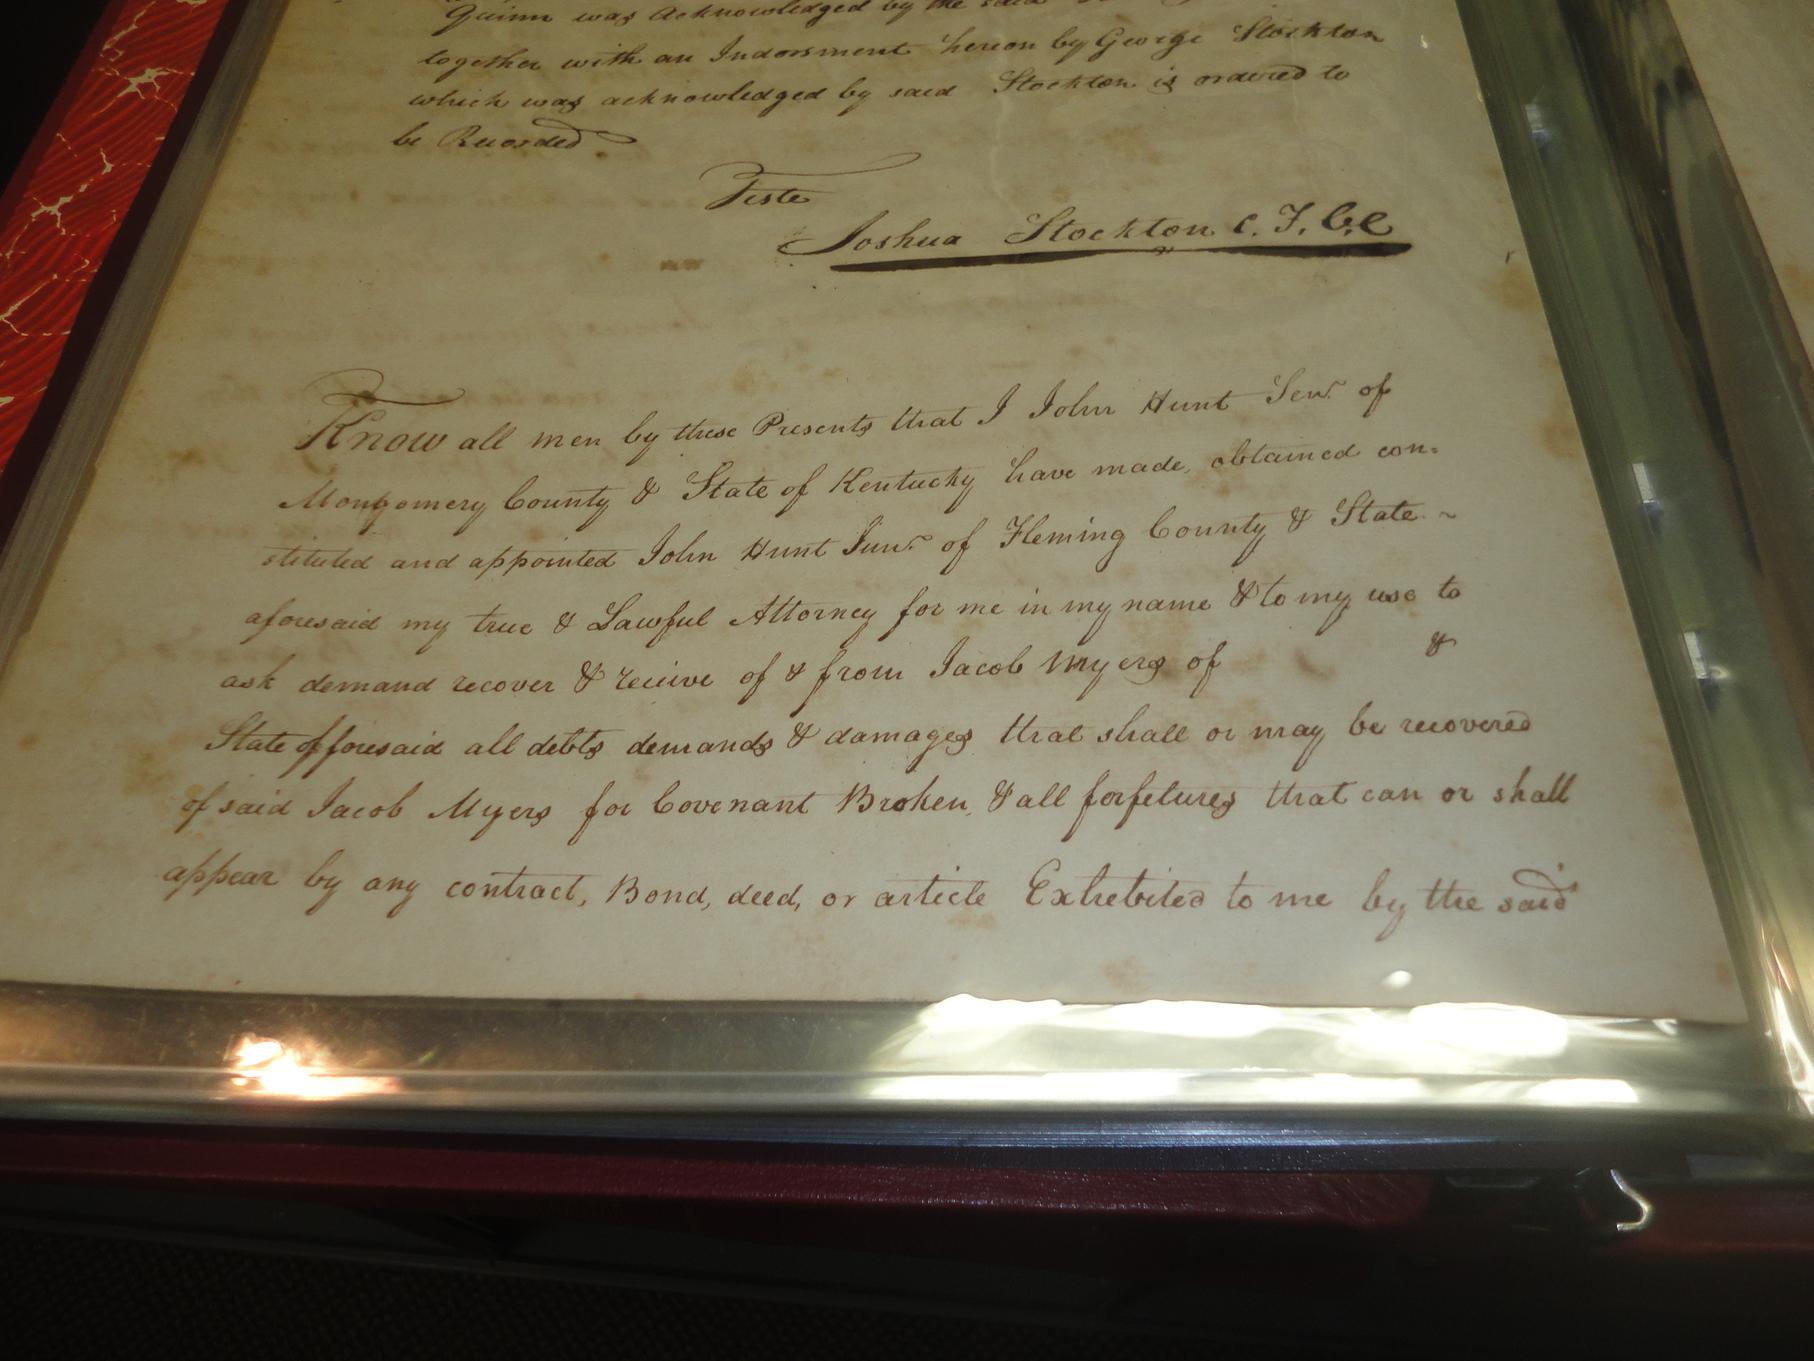 Quinn was Acknowledged by the said
together with an Indorsment hereon by George Stockton
which was acknowledged by said Stockton is ordered to
be Recorded
Teste
Joshua Stockton C. F. C. C
Know all men by these Presents that I John Hunt Senr. of
Montgomery County & State of Kentucky have made, obtained con-
stituted and appointed John Hunt Junr. of Fleming County & State
aforesaid my true & Lawful Attorney for me in my name & to my use to
ask demand recover & receive of & from Jacob Myers of &
State afforesaid all debts demands & damages that shall or may be recovered
of said Jacob Myers for Covenant Broken, & all forfetures that can or shall
appear by any contract, Bond, deed, or article Exhebited to me by the said